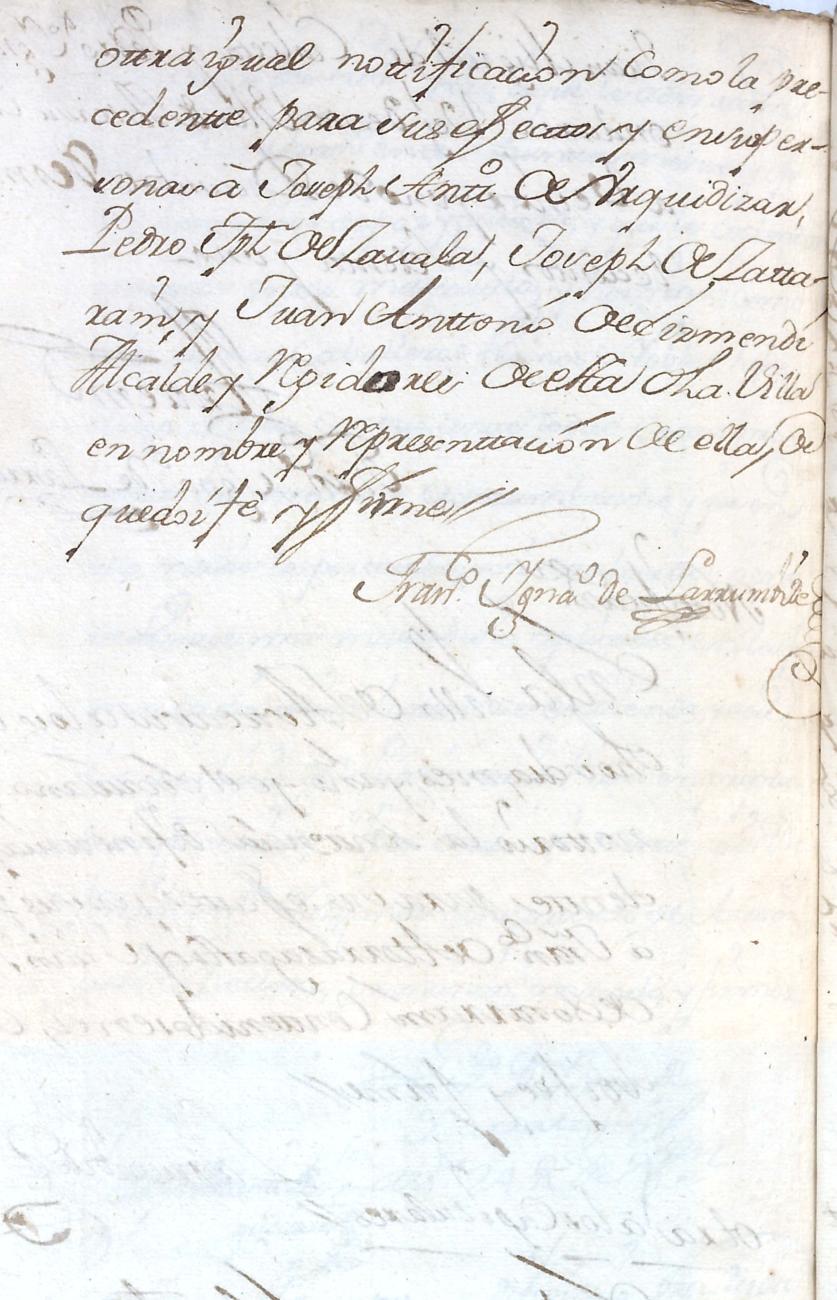 ottra ygual nottificacion como la pre-
cedentte para sus effecttos y en sus per-
sonas â Joseph Antto. de Vrquidizar,
Pedro Ygt. de Zauala, Joseph de Zatta-
rain, y Juan Anttonio de Lizmendi
Alcalde y Rexidores de esta dha. Villa
en nombre y Representtacion de ella, de
que doi fê y firme
Franco. Ygnao. de Larrumbide